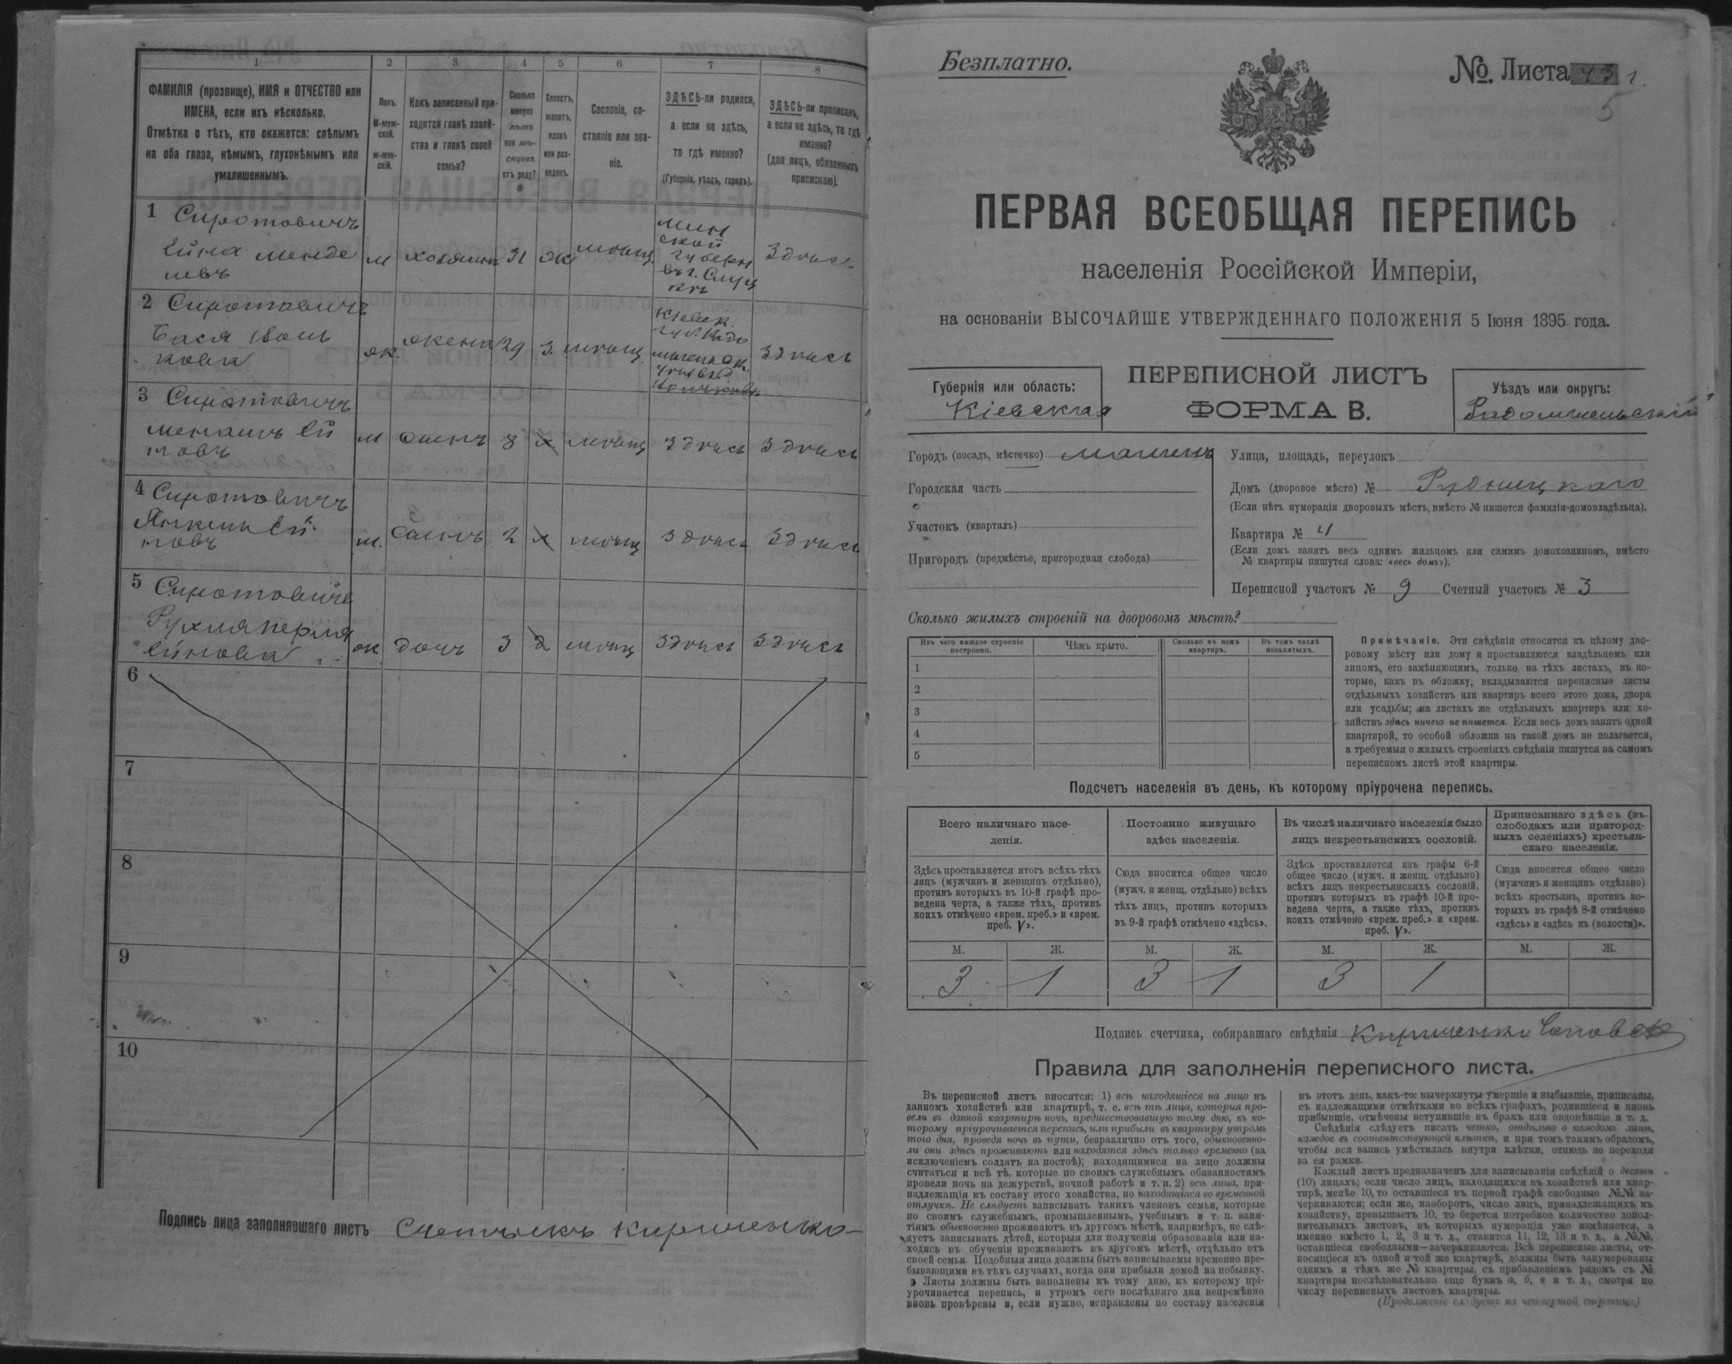 1 2 3 4 5 6 7 8
ФАМИЛІЯ (прозвище), ИМЯ и ОТЧЕСТВО или
ИМЕНА, если ихъ нѣсколько.
Отмѣтка о тѣхъ, кто окажется: слѣпымъ
на оба глаза, нѣмымъ, глухонѣмымъ или
умалишеннымъ.
Полъ.
М-муж-
ской.
Ж-жен-
скій.
Какъ записанный при-
ходится главѣ хозяй-
ства и главѣ своей
семьи?
Сколько
минуло
лѣтъ
или мѣ-
сяцевъ
отъ роду?
Холостъ,
женатъ,
вдовъ
или раз-
веденъ.
Сословіе, со-
стояніе или зва-
ніе.
ЗДѢСЬ-ли родился,
а если не здѣсь,
то гдѣ именно?
(Губернія, уѣздъ, городъ).
ЗДѢСЬ-ли приписанъ,
а если не здѣсь, то гдѣ
именно?
(для лицъ, обязанныхъ
припискою).
1 Сиротовичъ
м хозяинъ 31 ж мѣщ здѣсь
Мин
ской
губерн
въ г. Слуц
кѣ
2 Сиротовичъ
Бася
ж. жена 29 з. мѣщ здѣсь
Кіевск.
3 Сиротовичъ
м сынъ 8 х мѣщ здѣсь здѣсь
4 Сиротовичъ
м. сынъ 2 х мѣщ здѣсь здѣсь
5 Сиротовичъ
Рухля Перля
Ейнова ж дочь 3 д мѣщ здѣсь здѣсь
6
7
8
9
10
Подпись лица заполнявшаго листъ Счетчикъ Кириченко
Безплатно.
№. Листа 43 г.
5
ПЕРВАЯ ВСЕОБЩАЯ ПЕРЕПИСЬ
населенія Россійской Имперіи,
на основаніи ВЫСОЧАЙШЕ УТВЕРЖДЕННАГО ПОЛОЖЕНІЯ 5 Іюня 1895 года.
Губернія или область:
Кіевская
ПЕРЕПИСНОЙ ЛИСТЪ
ФОРМА В.
Уѣздъ или округъ:
Радомысльскій
Городъ (посадъ, мѣстечко) Малинъ
Городская часть
Участокъ (кварталъ)
Пригородъ (предмѣстье, пригородная слобода)
Улица, площадь, переулокъ
Домъ (дворовое мѣсто) № Рудницкаго
(Если нѣтъ нумераціи дворовыхъ мѣстъ, вмѣсто № пишется фамилія домовладѣльца).
Квартира № 4
(Если домъ занятъ весь однимъ жильцомъ или самимъ домохозяиномъ, вмѣсто
№ квартиры пишутся слова: «весь домъ»).
Переписной участокъ № 9 Счетный участокъ № 3
Сколько жилыхъ строеній на дворовомъ мѣстѣ?
Изъ чего каждое строеніе
построено.
Чѣмъ крыто.
Сколько въ немъ
квартиръ.
Въ томъ числѣ
незанятыхъ.
1
2
3
4
5
Примѣчаніе. Эти свѣдѣнія относятся къ цѣлому дво-
ровому мѣсту или дому и проставляются владѣльцемъ или
лицомъ, его замѣняющимъ, только на тѣхъ листахъ, въ ко-
торые, какъ въ обложку, вкладываются переписные листы
отдѣльныхъ хозяйствъ или квартиръ всего этого дома, двора
или усадьбы; на листахъ же отдѣльныхъ квартиръ или хо-
зяйствъ здѣсь ничего не пишется. Если весь домъ занятъ одной
квартирой, то особой обложки на такой домъ не полагается,
а требуемыя о жилыхъ строеніяхъ свѣдѣнія пишутся на самомъ
переписномъ листѣ этой квартиры.
Подсчетъ населенія въ день, къ которому пріурочена перепись.
Всего наличнаго насе-
ленія.
Здѣсь проставляется итогъ всѣхъ тѣхъ
лицъ (мужчинъ и женщинъ отдѣльно),
противъ которыхъ въ 10-й графѣ про-
ведена черта, а также тѣхъ, противъ
коихъ отмѣчено «врем. преб.» и «врем.
преб. V».
М. Ж.
3 1
Постоянно живущаго
здѣсь населенія.
Сюда вносится общее число
(мужч. и женщ. отдѣльно) всѣхъ
тѣхъ лицъ, противъ которыхъ
въ 9-й графѣ отмѣчено «здѣсь».
М. Ж.
3 1
Въ числѣ наличнаго населенія было
лицъ некрестьянскихъ сословій.
Здѣсь проставляется изъ графы 6-й
общее число (мужч. и женщ. отдѣльно)
всѣхъ лицъ некрестьянскихъ сословій,
противъ которыхъ въ графѣ 10-й про-
ведена черта, а также тѣхъ, противъ
коихъ отмѣчено «врем. преб.» и «врем.
преб. V».
М. Ж.
3 1
Приписаннаго здѣсь (въ
слободахъ или пригород-
ныхъ селеніяхъ) крестьян-
скаго населенія.
Сюда вносится общее число
(мужчинъ и женщинъ отдѣльно)
всѣхъ крестьянъ, противъ ко-
торыхъ въ графѣ 8-й отмѣчено
«здѣсь» и «здѣсь къ (волости)».
М. Ж.
Подпись счетчика, собиравшаго свѣдѣнія Кириченко
Правила для заполненія переписного листа.
Въ переписной листъ вносятся: 1) всѣ находящіеся на лицо въ
данномъ хозяйствѣ или квартирѣ, т. е. всѣ тѣ лица, которыя про-
вели въ данной квартирѣ ночь, предшествовавшую тому дню, къ ко-
торому пріурочивается перепись, или прибыли въ квартиру утромъ
того дня, проведя ночь въ пути, безразлично отъ того, обыкновенно-
ли они здѣсь проживаютъ или находятся здѣсь только временно (за
исключеніемъ солдатъ на постоѣ); находящимися на лицо должны
считаться и всѣ тѣ, которые по своимъ служебнымъ обязанностямъ
провели ночь на дежурствѣ, ночной работѣ и т. п. 2) всѣ лица, при-
надлежащія къ составу этого хозяйства, но находящіяся во временной
отлучкѣ. Не слѣдуетъ записывать такихъ членовъ семьи, которые
по своимъ служебнымъ, промышленнымъ, учебнымъ и т. п. заня-
тіямъ обыкновенно проживаютъ въ другомъ мѣстѣ, напримѣръ, не слѣ-
дуетъ записывать дѣтей, которыя для полученія образованія или на-
ходясь въ обученіи проживаютъ въ другомъ мѣстѣ, отдѣльно отъ
своей семьи. Подобныя лица должны быть записываемы временно пре-
бывающими въ тѣхъ случаяхъ, когда они прибыли домой на побывку.
Листы должны быть заполнены къ тому дню, къ которому прі-
урочивается перепись, и утромъ сего послѣдняго дня непремѣнно
вновь провѣрены и, если нужно, исправлены по составу населенія
въ этотъ день, какъ-то: вычеркнуты умершіе и выбывшіе, приписаны,
съ надлежащими отмѣтками во всѣхъ графахъ, родившіеся и вновь
прибывшіе, отмѣчены вступившіе въ бракъ или овдовѣвшіе и т. д.
Свѣдѣнія слѣдуетъ писать четко, отдѣльно о каждомъ лицѣ,
каждое въ соотвѣтствующей клѣткѣ, и при томъ такимъ образомъ,
чтобы вся запись умѣстилась внутри клѣтки, отнюдь не переходя
за ея рамки.
Каждый листъ предназначенъ для записыванія свѣдѣній о десяти
(10) лицахъ; если число лицъ, находящихся въ хозяйствѣ или квар-
тирѣ, менѣе 10, то оставшіеся въ первой графѣ свободные №№ за-
черкиваются; если же, наоборотъ, число лицъ, принадлежащихъ къ
хозяйству, превышаетъ 10, то берется потребное количество допол-
нительныхъ листовъ, въ которыхъ нумерація уже измѣняется, а
именно вмѣсто 1, 2, 3 и т. д., ставится 11, 12, 13 и т. д., а №№,
оставшіеся свободными—зачеркиваются. Всѣ переписные листы, от-
носящіеся къ одной и той же квартирѣ, должны быть занумерованы
однимъ и тѣмъ же № квартиры, съ прибавленіемъ рядомъ съ №
квартиры послѣдовательно еще буквъ а, б, в и т. д., смотря по
числу переписныхъ листовъ квартиры.
(Продолженіе слѣдуетъ на четвертой страницѣ)